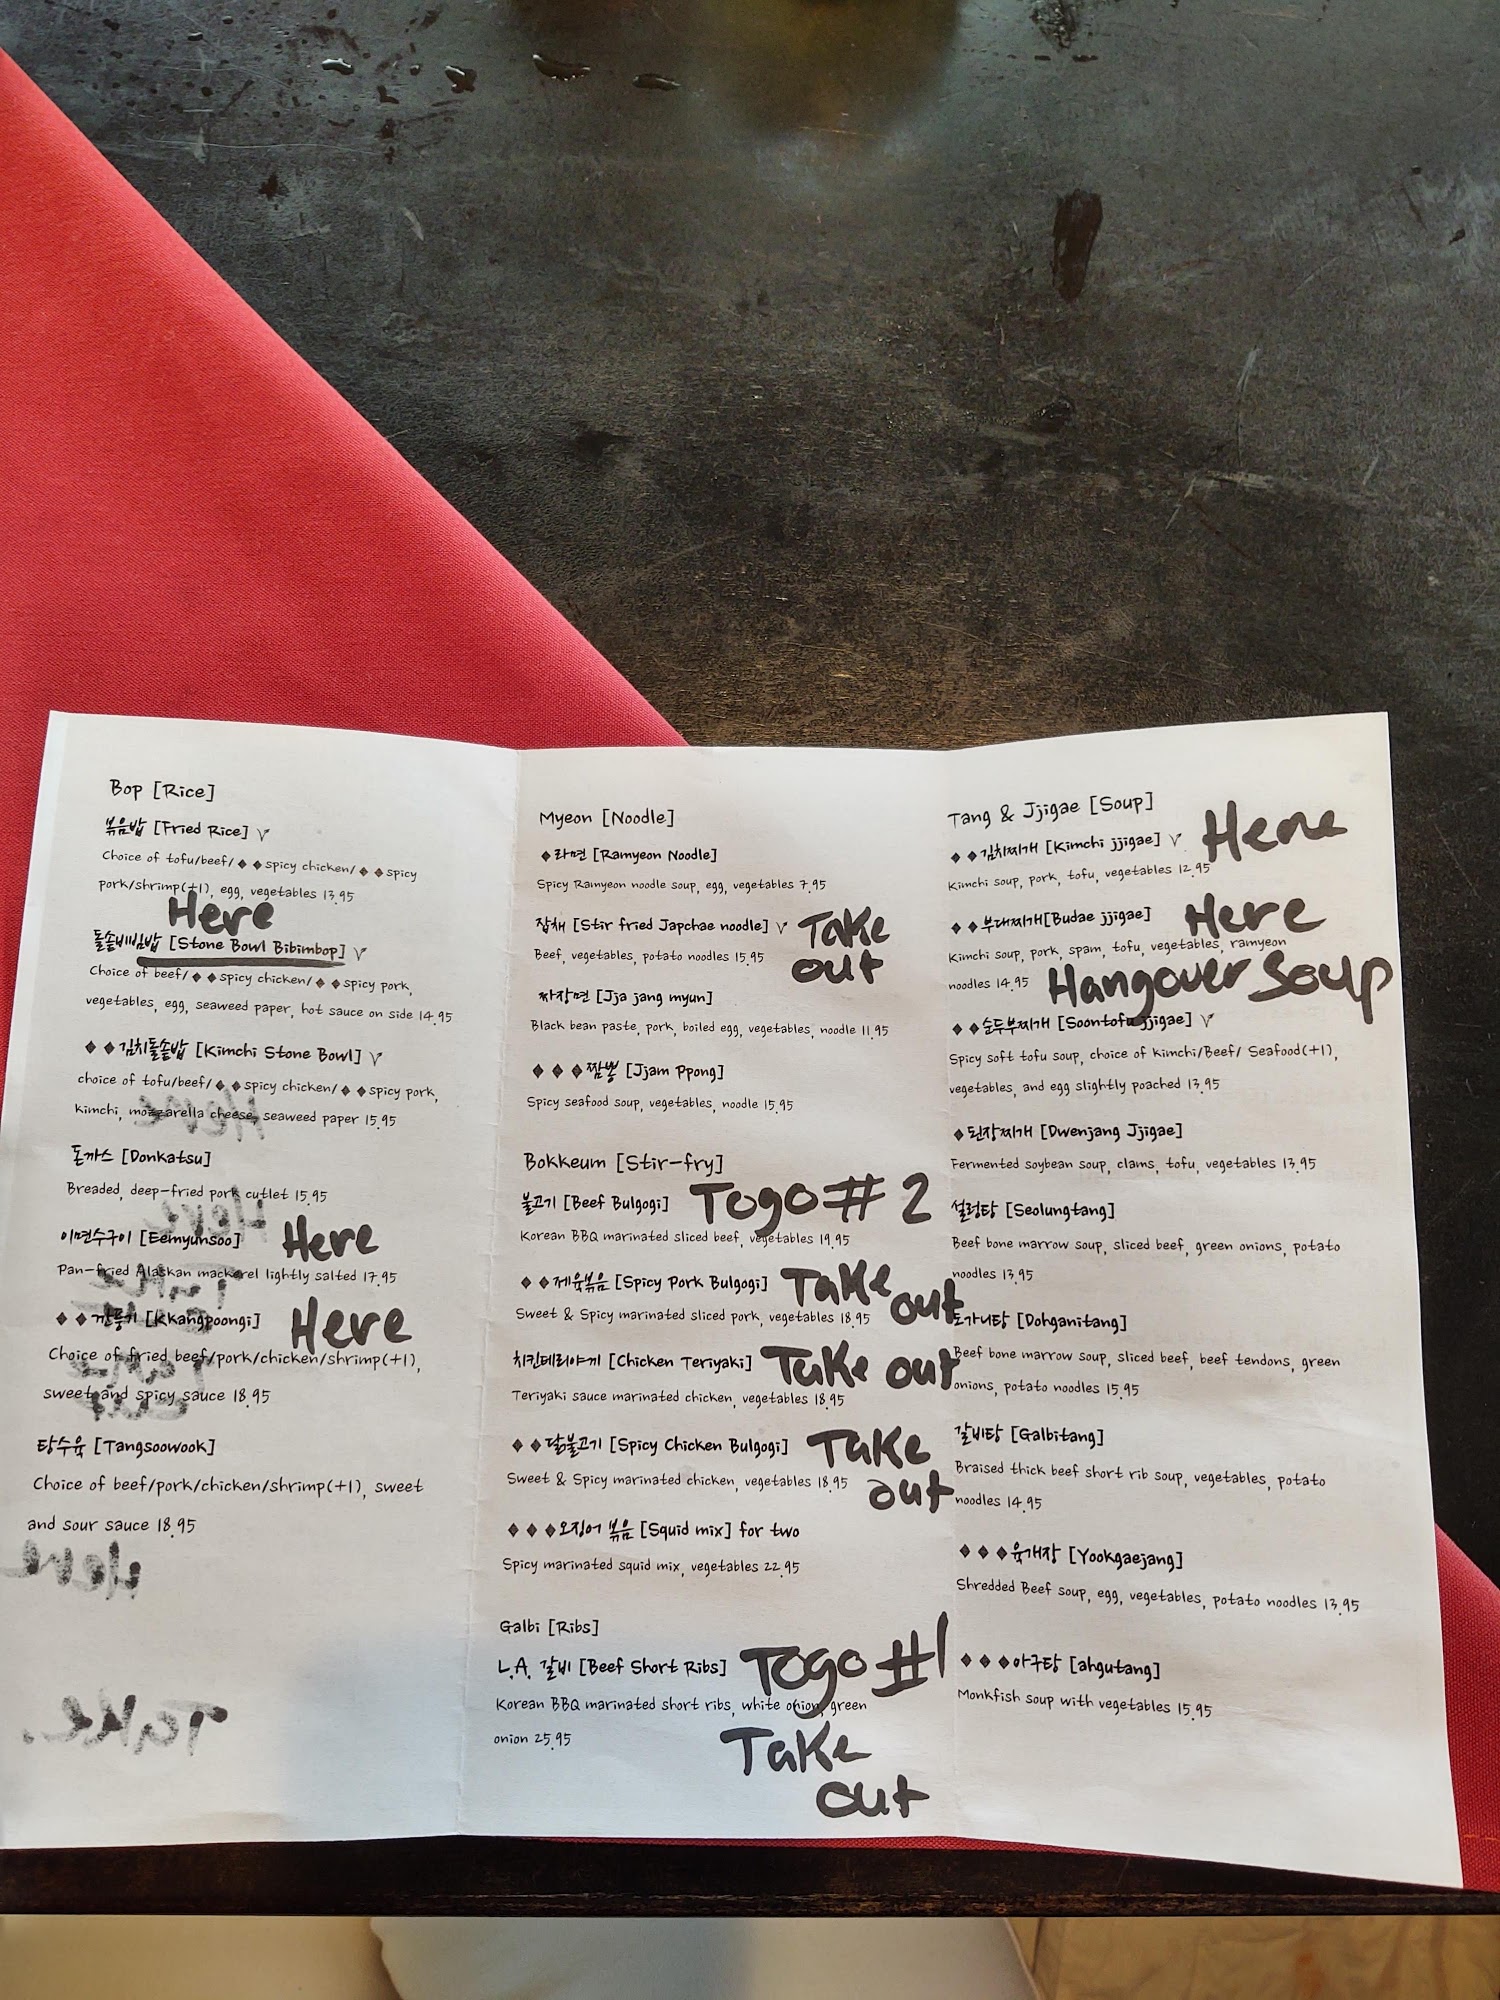 Bop [Rice]
볶음밥 [Fried Rice] V
Choice of tofu/beef/◆◆spicy chicken/◆◆spicy
pork/shrimp(+1), egg, vegetables 13.95
Here
돌솥비빔밥 [Stone Bowl Bibimbop] V
Choice of beef/◆◆spicy chicken/◆◆spicy pork,
vegetables, egg, seaweed paper, hot sauce on side 14.95
◆◆김치돌솥밥 [Kimchi Stone Bowl] V
choice of tofu/beef/◆◆spicy chicken/◆◆spicy pork,
kimchi, mozzarella cheese, seaweed paper 15.95
돈까스 [Donkatsu]
Breaded, deep-fried pork cutlet 15.95
이면수구이 [Eemyunsoo] Here
Pan-fried Alaskan mackerel lightly salted 17.95
◆◆깐풍기 [kkangpoongi] Here
Choice of fried beef/pork/chicken/shrimp(+1),
sweet and spicy sauce 18.95
탕수육 [Tangsoowook]
Choice of beef/pork/chicken/shrimp(+1), sweet
and sour sauce 18.95
Myeon [Noodle]
◆라면 [Ramyeon Noodle]
Spicy Ramyeon noodle soup, egg, vegetables 7.95
잡채 [Stir fried Japchae noodle] V Take
Beef, vegetables, potato noodles 15.95 out
짜장면 [Jja jang myun]
Black bean paste, pork, boiled egg, vegetables, noodle 11.95
◆◆◆짬뽕 [Jjam Ppong]
Spicy seafood soup, vegetables, noodle 15.95
Bokkeum [Stir-fry]
불고기 [Beef Bulgogi] Togo # 2
Korean BBQ marinated sliced beef, vegetables 19.95
◆◆제육볶음 [Spicy Pork Bulgogi] Take out
Sweet & Spicy marinated sliced pork, vegetables 18.95
치킨테리야끼 [Chicken Teriyaki] Take out
Teriyaki sauce marinated chicken, vegetables 18.95
◆◆닭불고기 [Spicy Chicken Bulgogi] Take
Sweet & Spicy marinated chicken, vegetables 18.95 out
◆◆◆오징어 볶음 [Squid mix] for two
Spicy marinated squid mix, vegetables 22.95
Galbi [Ribs]
L.A. 갈비 [Beef Short Ribs] Togo #1
Korean BBQ marinated short ribs, white onion, green
onion 25.95
Take
out
Tang & Jjigae [Soup]
◆◆김치찌개 [Kimchi jjigae] V Here
Kimchi soup, pork, tofu, vegetables 12.95
◆◆부대찌개[Budae jjigae] Here
Kimchi soup, pork, spam, tofu, vegetables, ramyeon
noodles 14.95 Hangover Soup
◆◆순두부찌개 [Soontofu jjigae] V
Spicy soft tofu soup, choice of kimchi/Beef/ Seafood(+1),
vegetables, and egg slightly poached 13.95
◆된장찌개 [Dwenjang Jjigae]
Fermented soybean soup, clams, tofu, vegetables 13.95
설렁탕 [Seolungtang]
Beef bone marrow soup, sliced beef, green onions, potato
noodles 13.95
도가니탕 [Dohganitang]
Beef bone marrow soup, sliced beef, beef tendons, green
onions, potato noodles 15.95
갈비탕 [Galbitang]
Braised thick beef short rib soup, vegetables, potato
noodles 14.95
◆◆◆육개장 [Yookgaejang]
Shredded Beef soup, egg, vegetables, potato noodles 13.95
◆◆◆아구탕 [ahgutang]
Monkfish soup with vegetables 15.95